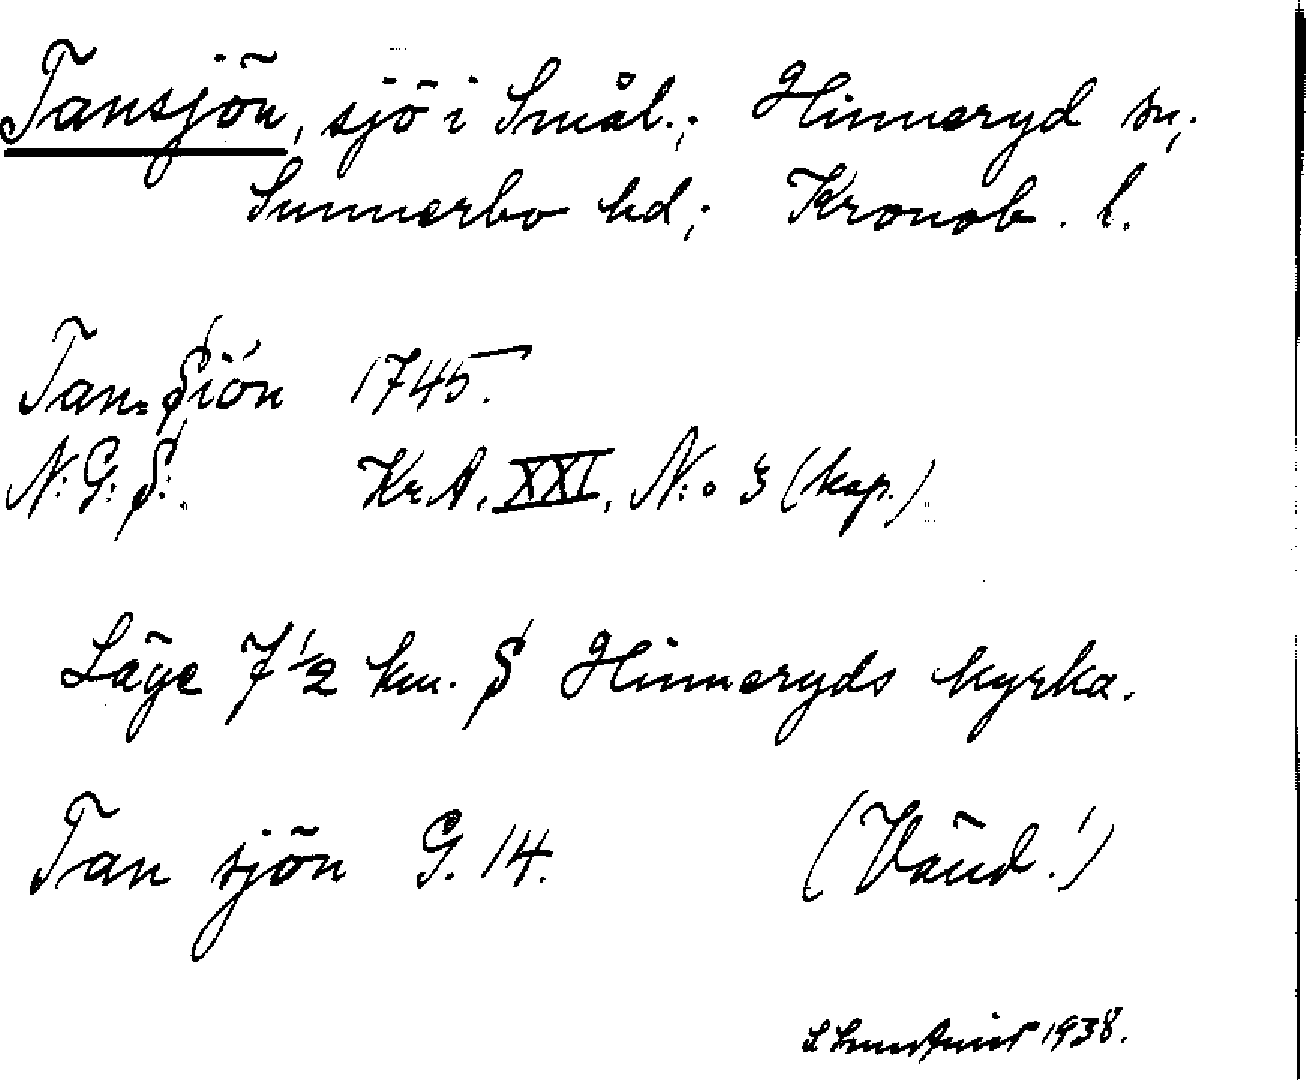 Tansjön, sjö i Smål.; Hinneryd sn;
Sunnerbo hd; Kronob. l.
Tan-Siön 1745.
N:G:S: Kr.A. XXI, N:o 3 (kop.)
Läge 7 1/2 km. S Hinneryds kyrka.
Tan sjön G. 14. (Vänd!)
1938.